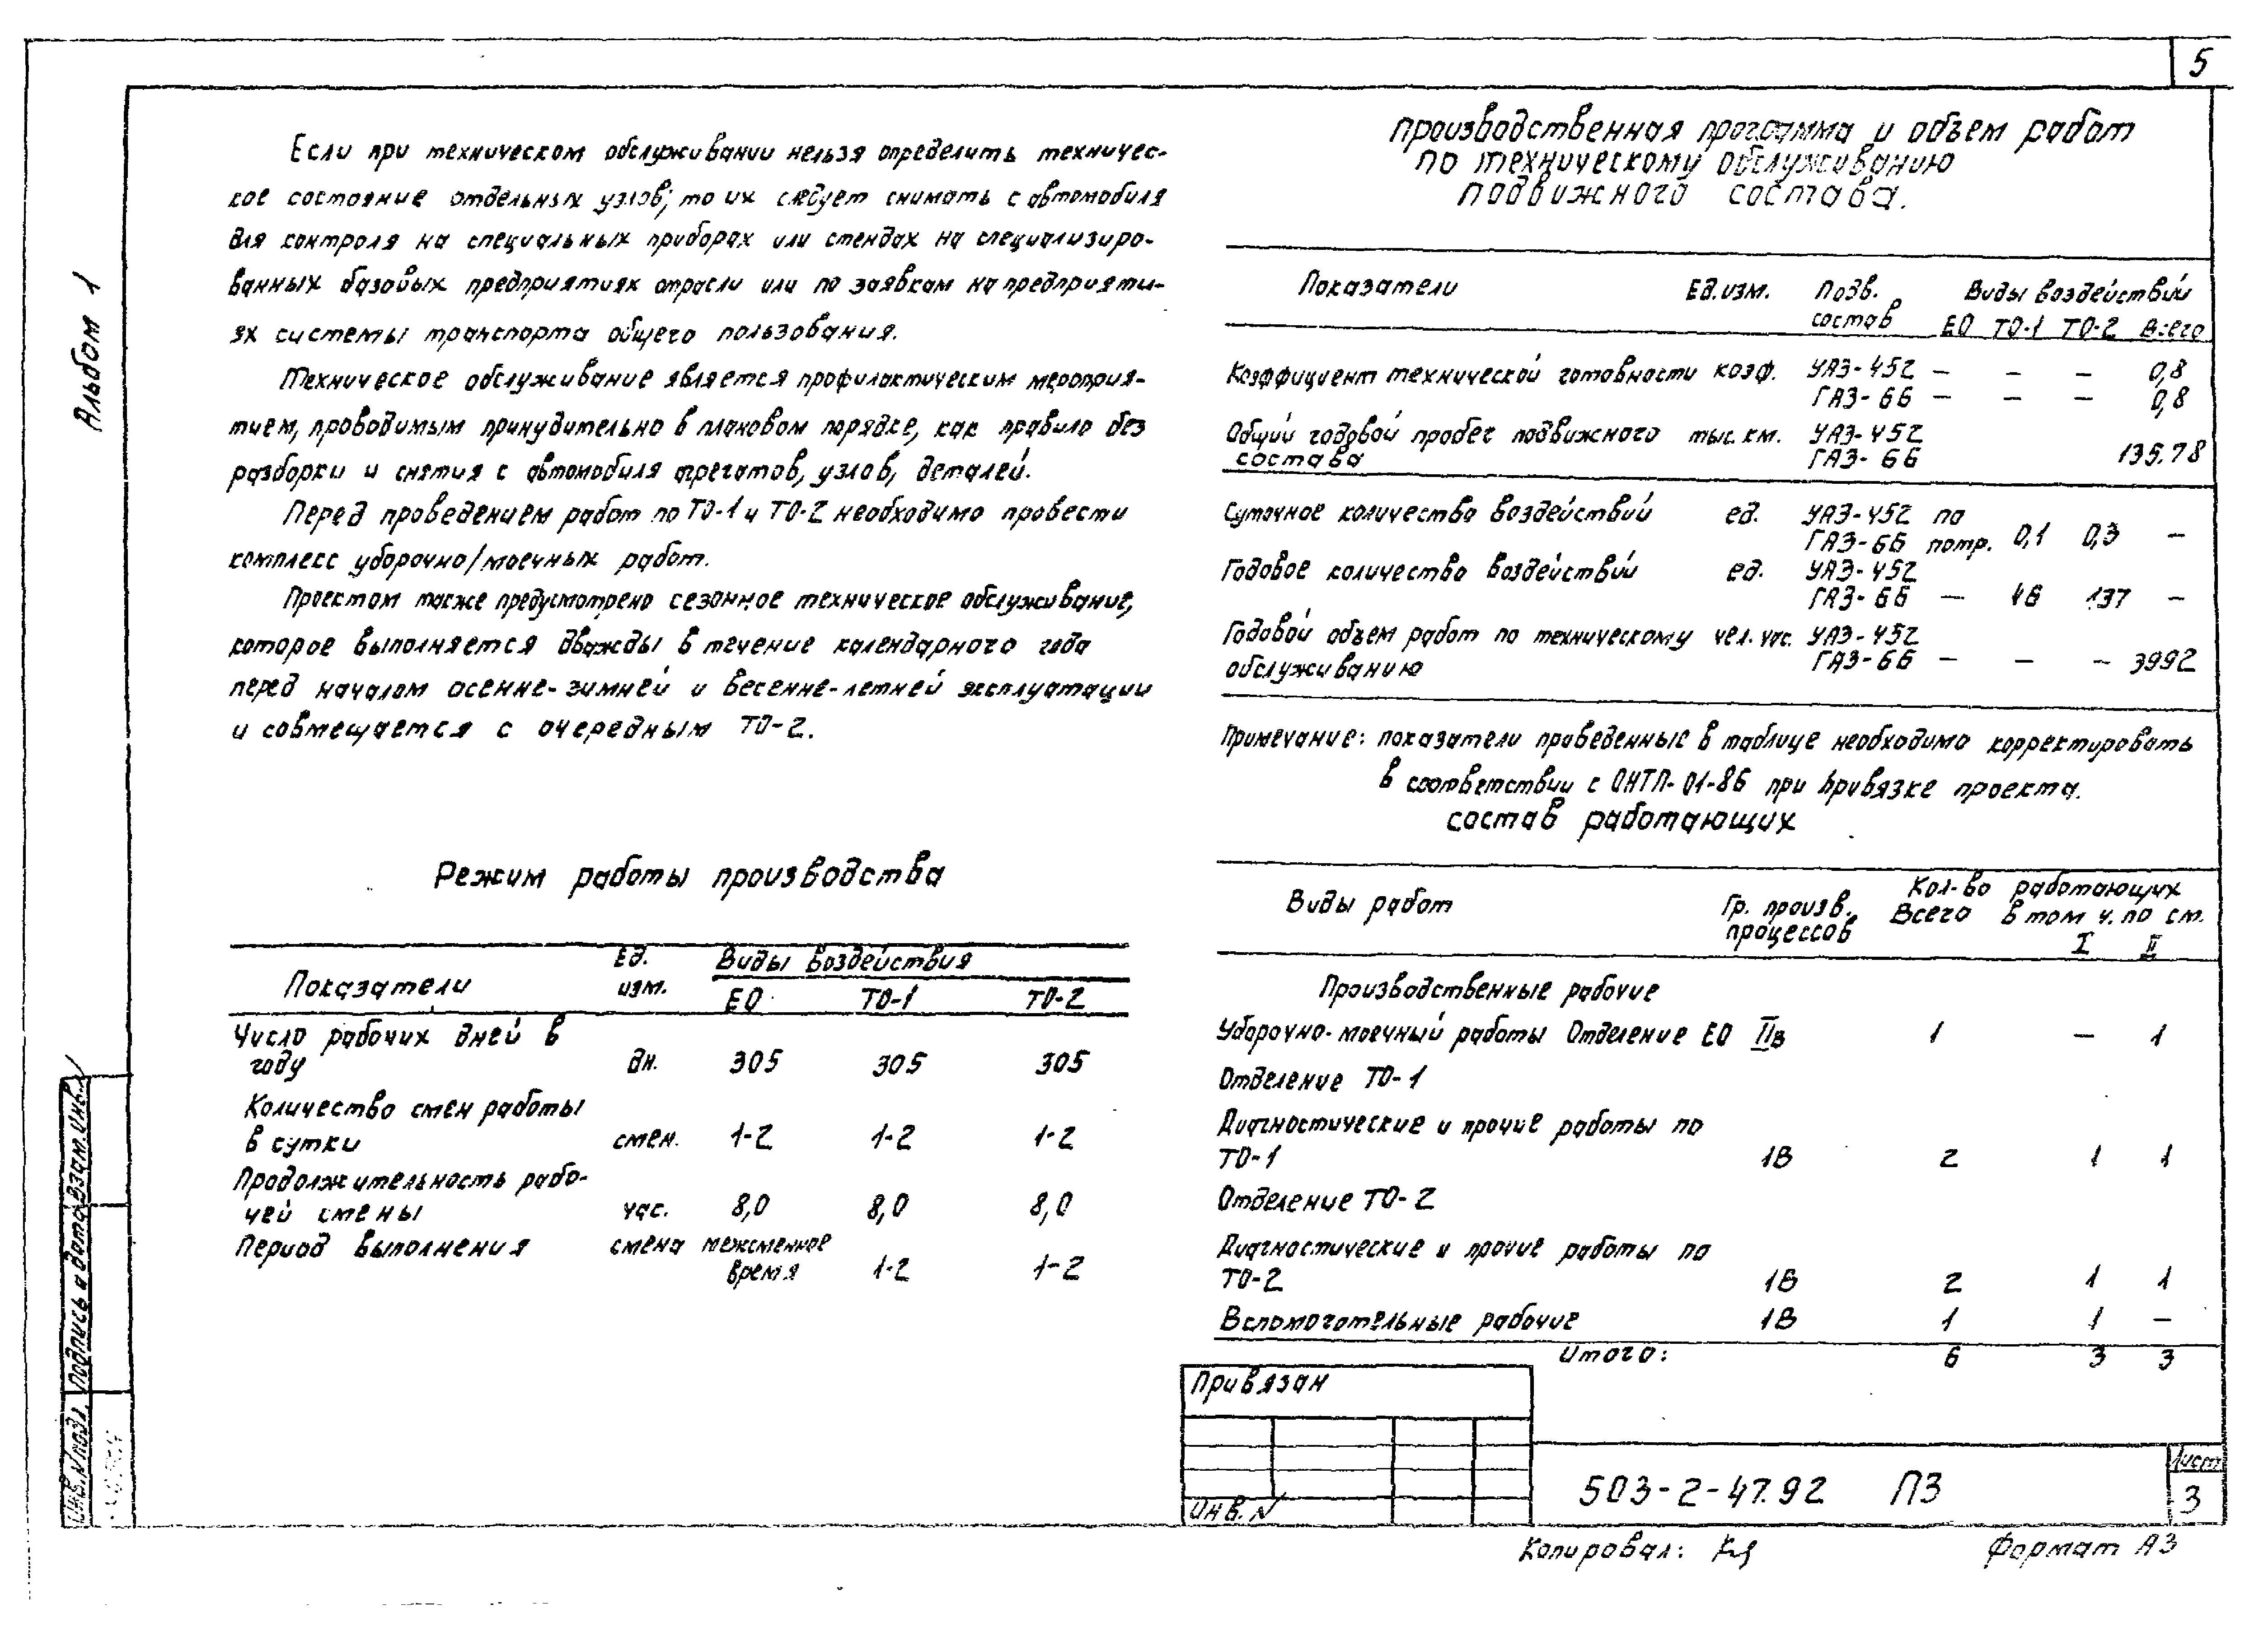 5
Альбом 1
Если при техническом обслуживании нельзя определить техничес-
кое состояние отдельных узлов, то их следует снимать с автомобиля
для контроля на специальных приборах или стендах на специализиро-
ванных базовых предприятиях отрасли или по заявкам на предприяти-
ях системы транспорта общего пользования.
Техническое обслуживание является профилактическим мероприя-
тием, проводимым принудительно в плановом порядке, как правило без
разборки и снятия с автомобиля агрегатов, узлов, деталей.
Перед проведением работ по ТО-1 и ТО-2 необходимо провести
комплекс уборочно/моечных работ.
Проектом также предусмотрено сезонное техническое обслуживание,
которое выполняется дважды в течение календарного года
перед началом осенне-зимней и весенне-летней эксплуатации
и совмещается с очередным ТО-2.
Режим работы производства
Показатели Ед. изм. Виды воздействия
ЕО ТО-1 ТО-2
Число рабочих дней в
году дн. 305 305 305
Количество смен работы
в сутки смен. 1-2 1-2 1-2
Продолжительность рабо-
чей смены час. 8,0 8,0 8,0
Период выполнения смена межсменное
время 1-2 1-2
производственная программа и объем работ
по техническому обслуживанию
подвижного состава.
Показатели Ед. изм. Подв. Виды воздействий
состав ЕО ТО-1 ТО-2 Всего
Коэффициент технической готовности коэф. УАЗ-452 — — — 0,8
ГАЗ-66 — — — 0,8
Общий годовой пробег подвижного тыс. км. УАЗ-452
состава ГАЗ-66 135.78
Суточное количество воздействий ед. УАЗ-452 по
ГАЗ-66 потр. 0,1 0,3 —
Годовое количество воздействий ед. УАЗ-452
ГАЗ-66 — 46 137 —
Годовой объем работ по техническому чел. час. УАЗ-452
обслуживанию ГАЗ-66 — — — 3992
Примечание: показатели приведенные в таблице необходимо корректировать
в соответствии с ОНТП-01-86 при привязке проекта.
состав работающих
Виды работ Гр. произв. Кол-во работающих
процессов Всего в том ч. по см.
I II
Производственные рабочие
Уборочно-моечный работы Отделение ЕО IIв 1 — 1
Отделение ТО-1
Диагностические и прочие работы по
ТО-1 1В 2 1 1
Отделение ТО-2
Диагностические и прочие работы по
ТО-2 1В 2 1 1
Вспомогательные рабочие 1В 1 1 —
Итого: 6 3 3
Привязан
Инв. №
503-2-47.92 ПЗ
Лист
3
Копировал:
Формат А3
Инв.№подл. Подпись и дата Взам.инв.№